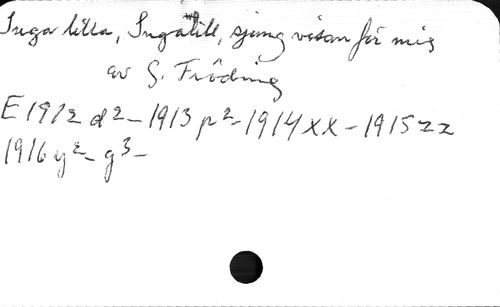 Inga lilla, Ingalill, sjung visan för mig
av G. Fröding
E 1912 d2 - 1913 p2 - 1914 XX - 1915 zz
1916 y2 - g3 -